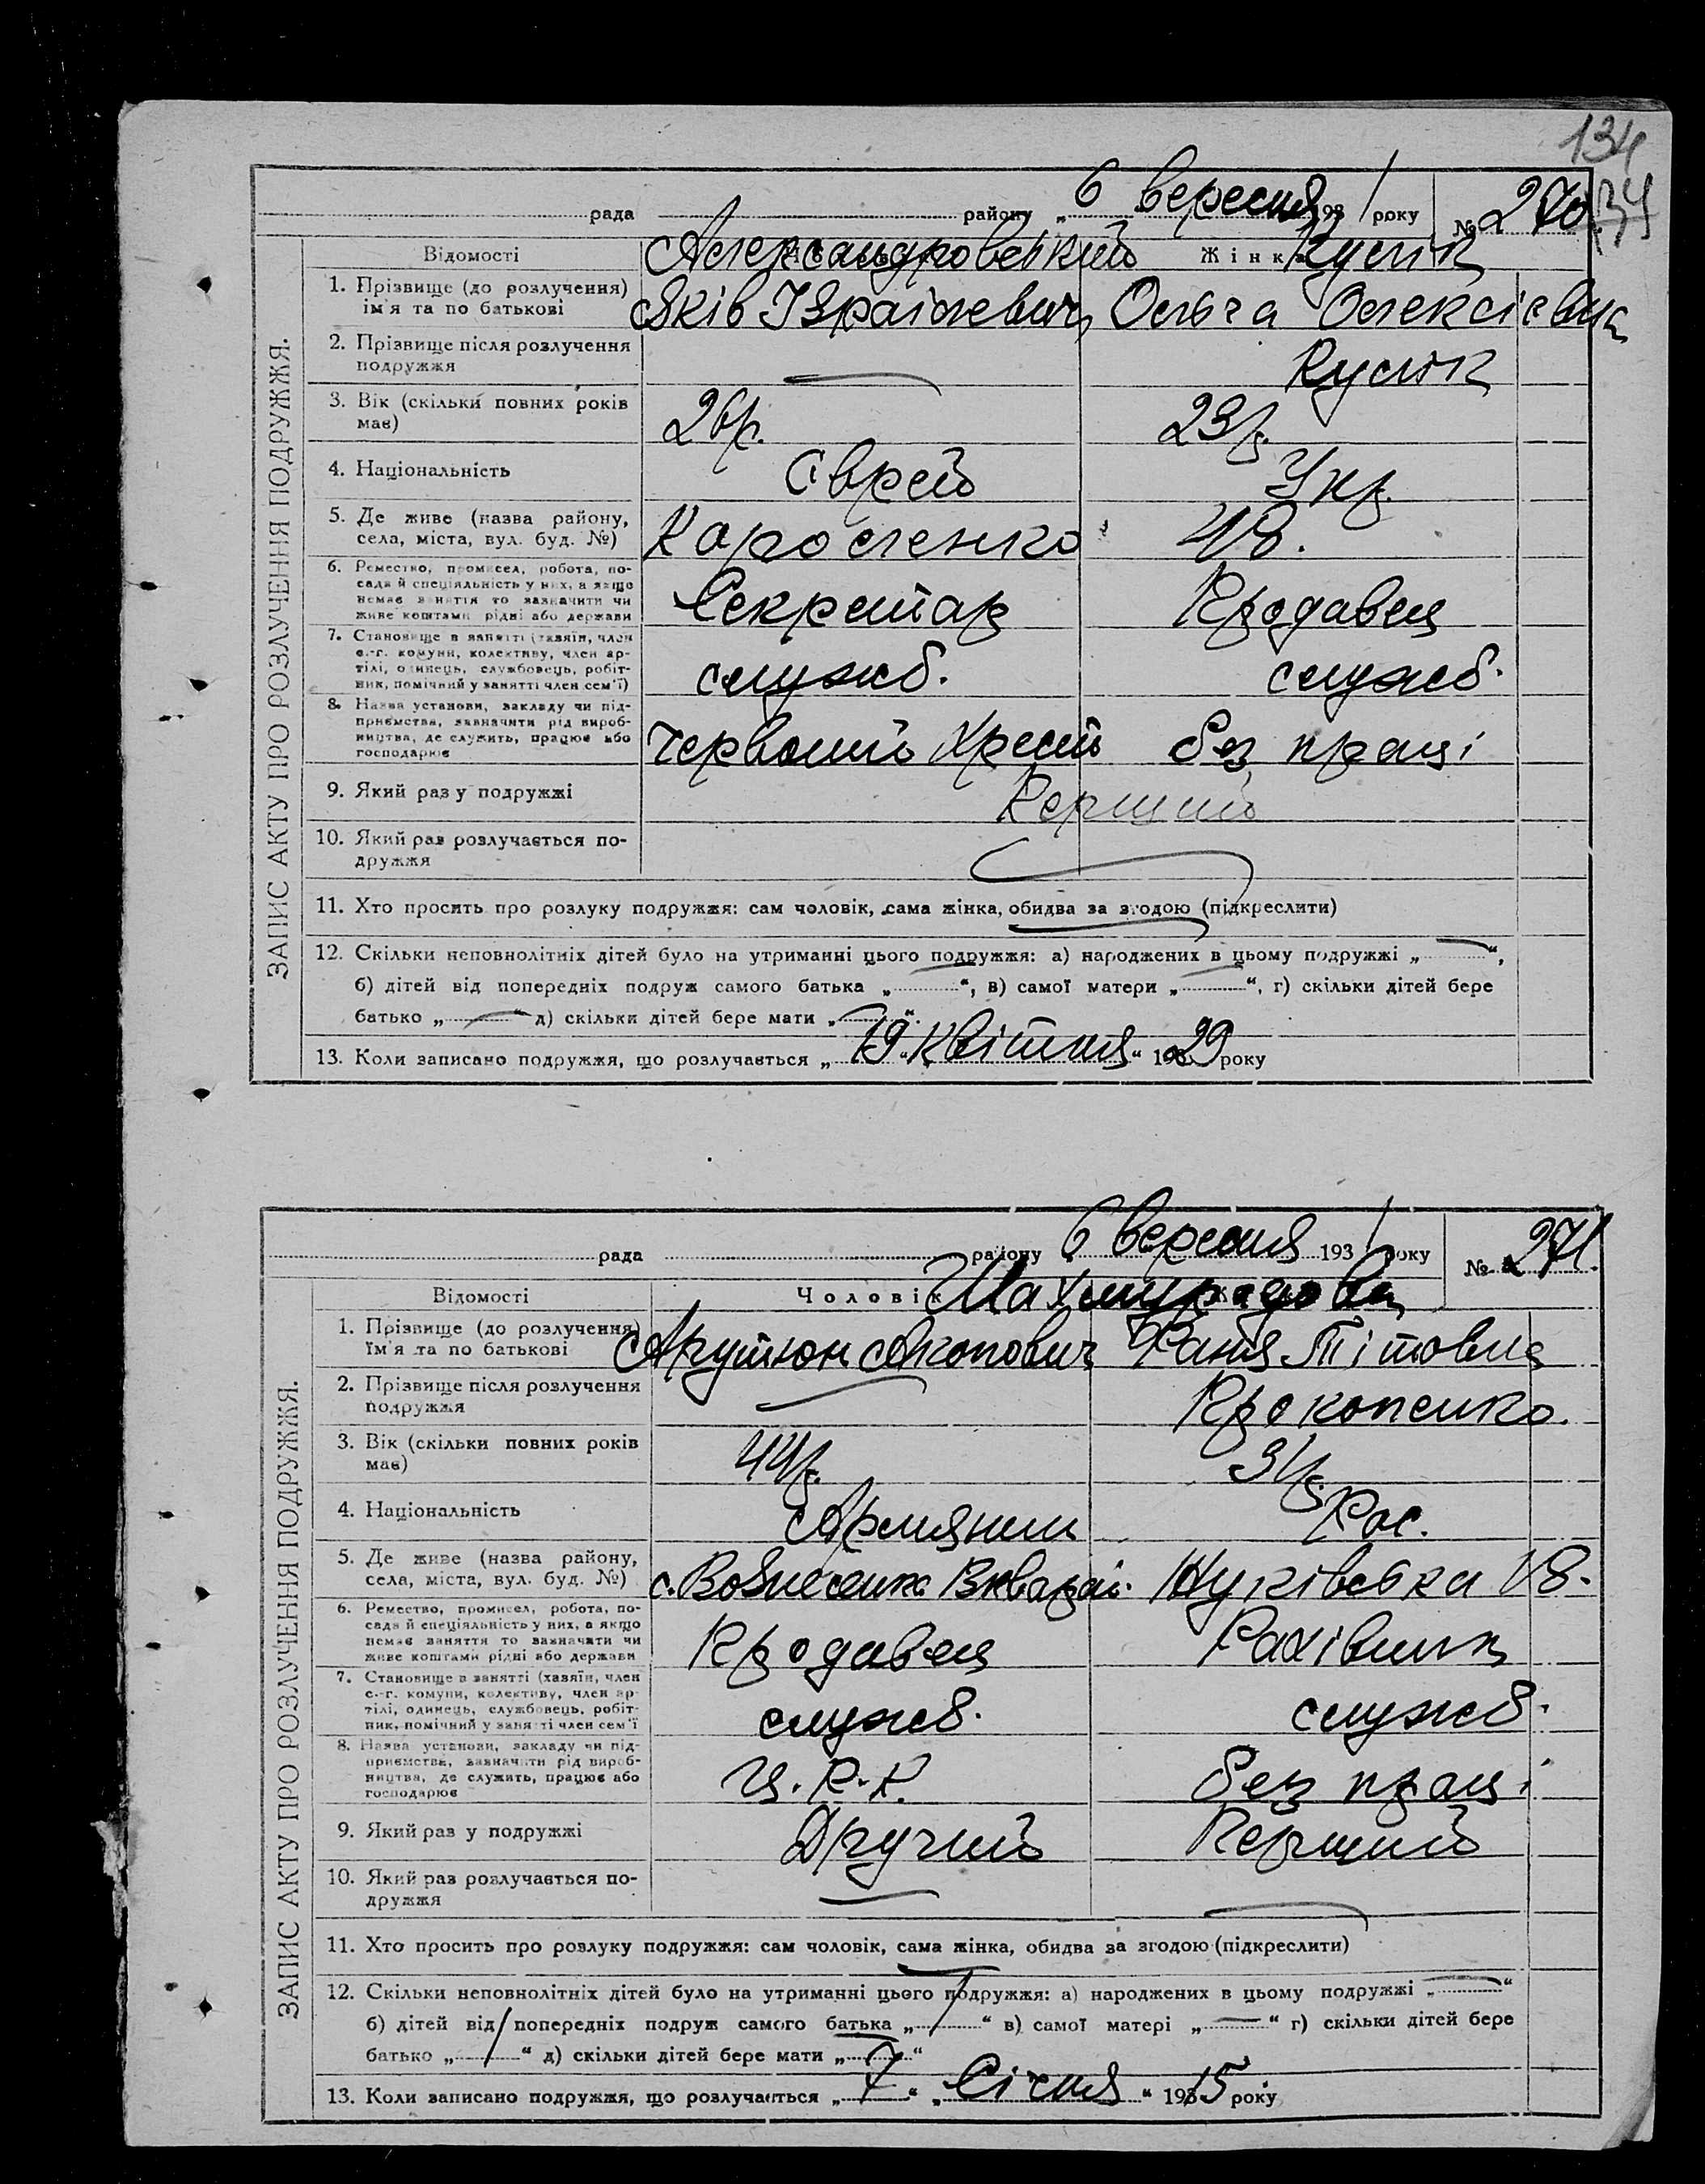 134
134
рада району „ 6 вересня 193 1 року № 270
ЗАПИС АКТУ ПРО РОЗЛУЧЕННЯ ПОДРУЖЖЯ.
Відомості Александровський Жінка Кулік
1. Прізвище (до розлучення) Яків Ізраілевич Ольга Олексієвна
ім'я та по батькові
2. Прізвище після розлучення Кулік
подружжя
3. Вік (скільки повних років 26 р. 23 р.
має)
4. Національність Єврей Укр.
5. Де живе (назва району,
села, міста, вул. буд. №) 48.
6. Ремество, промисел, робота, по-
сада й спеціяльність у них, а якщо
немає заняття то зазначити чи Секретар Продавец
живе коштами рідні або держави
7. Становище в занятті (хазяїн, член
с.-г. комуни, колективу, член ар-
тілі, одинець, службовець, робіт- служб. служб.
ник, помічний у занятті член сем'ї)
8. Назва установи, закладу чи під-
приємства, зазначити рід вироб-
ництва, де служить, працює або Червоний Хрест без праці
господарює
9. Який раз у подружжі Перший
10. Який раз розлучається по-
дружжя
11. Хто просить про розлуку подружжя: сам чоловік, сама жінка, обидва за згодою (підкреслити)
12. Скільки неповнолітніх дітей було на утриманні цього подружжя: а) народжених в цьому подружжі „ — “,
б) дітей від попередніх подруж самого батька „ “, в) самої матери „ “, г) скільки дітей бере
батько „ — “ д) скільки дітей бере мати „ — “.
13. Коли записано подружжя, що розлучається „ 19 “ Квітня “ 1929 року
рада району 6 вересня 193 1 року № 271.
ЗАПИС АКТУ ПРО РОЗЛУЧЕННЯ ПОДРУЖЖЯ.
Відомості Чоловік Шахмурадова
1. Прізвище (до розлучення) Арутюн Акопович Тітовна
ім'я та по батькові
2. Прізвище після розлучення Прокопенко.
подружжя
3. Вік (скільки повних років 44 р. 31 р.
має)
4. Національність Армянин Рос.
5. Де живе (назва району,
села, міста, вул. буд. №) с. Вознесенка 18.
6. Ремество, промисел, робота, по-
сада й спеціяльність у них, а якщо
немає заняття то зазначити чи Продавец Рахівниц
живе коштами рідні або держави
7. Становище в занятті (хазяїн, член
с.-г. комуни, колективу, член ар-
тілі, одинець, службовець, робіт- служб. служб.
ник, помічний у занятті член сем'ї
8. Назва установи, закладу чи під-
приємства, зазначити рід вироб-
ництва, де служить, працює або Ц.Р.К. без праці
господарює
9. Який раз у подружжі Другий Перший
10. Який раз розлучається по-
дружжя
11. Хто просить про розлуку подружжя: сам чоловік, сама жінка, обидва за згодою (підкреслити)
12. Скільки неповнолітніх дітей було на утриманні цього подружжя: а) народжених в цьому подружжі „ — “
б) дітей від попередніх подруж самого батька „ “ в) самої матері „ — “ г) скільки дітей бере
батько „ “ д) скільки дітей бере мати „ “
13. Коли записано подружжя, що розлучається „ 7 “ „ Січня “ 1915 року